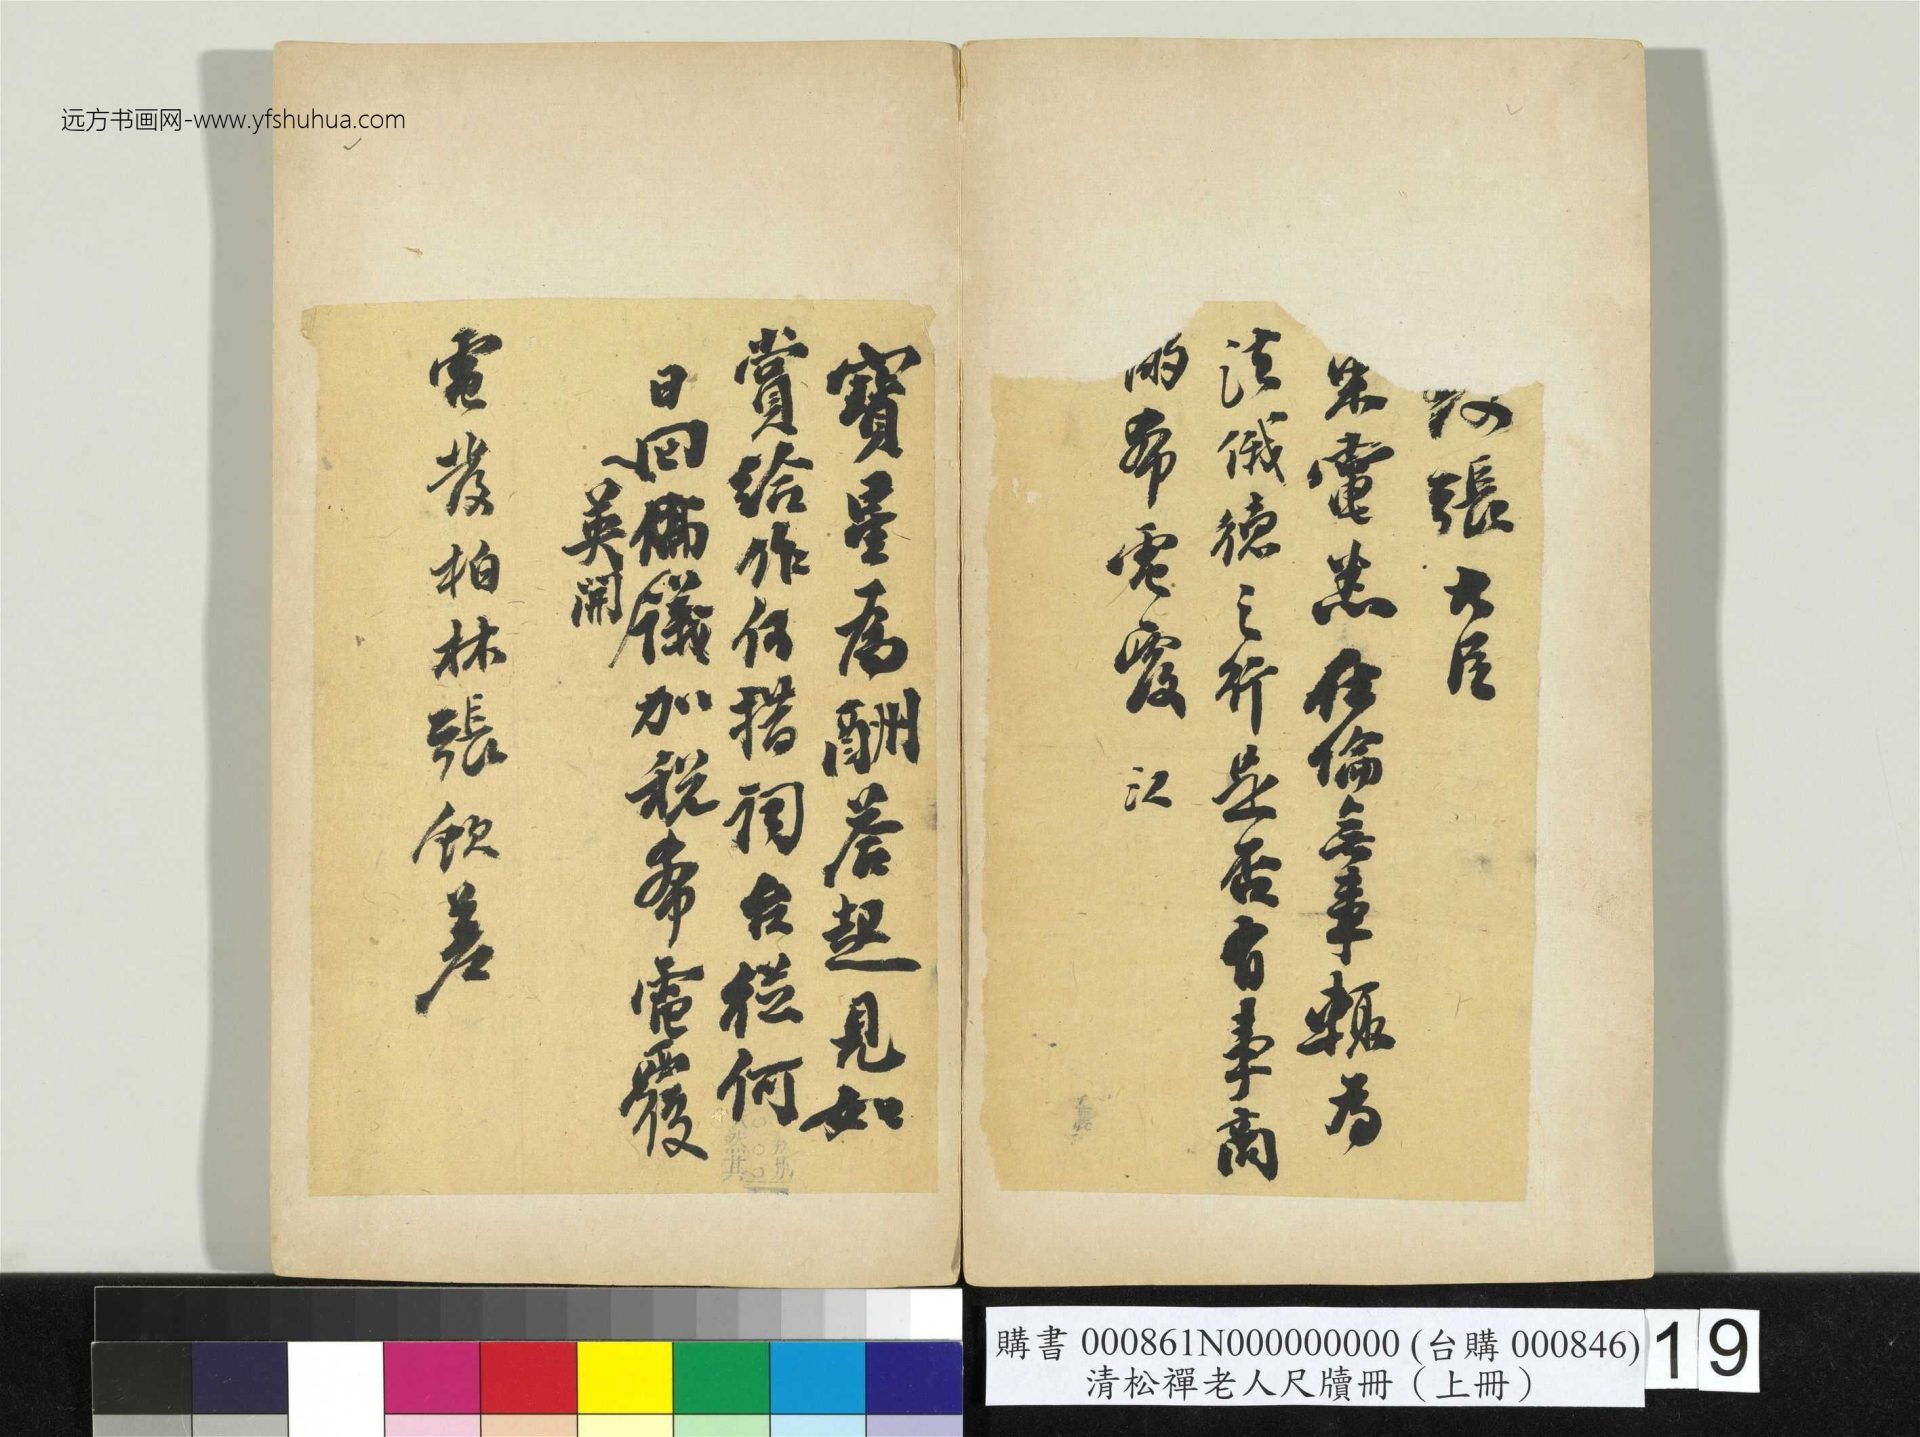 远方书画网-www.yfshuhua.com
張大臣
電悉倫無事輒為
法俄德之行是否有事商
希電覆 江
寶星為酬荅起見如
賞給作何措詞台從何
日回儀加稅希電覆
英開
電發柏林張欽差
購書 000861N000000000 (台購 000846)
清松禪老人尺牘冊（上冊）
19